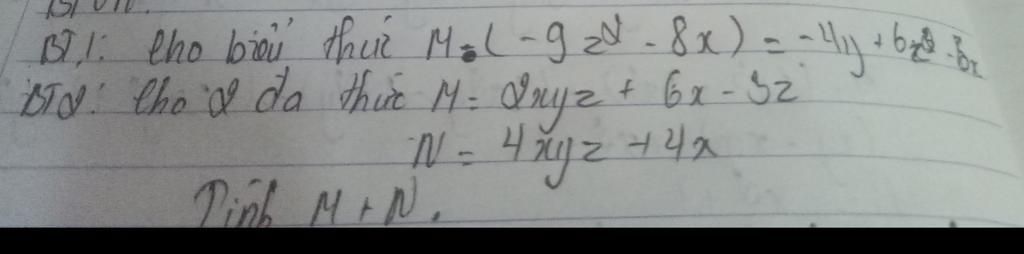 BT1: Cho biểu thức M = (-9z² - 8x) = -4y + 6z² - 3x
BT2: Cho 2 đa thức M = 2xyz + 6x - 3z
N = 4xyz + 4x
Tính M + N.